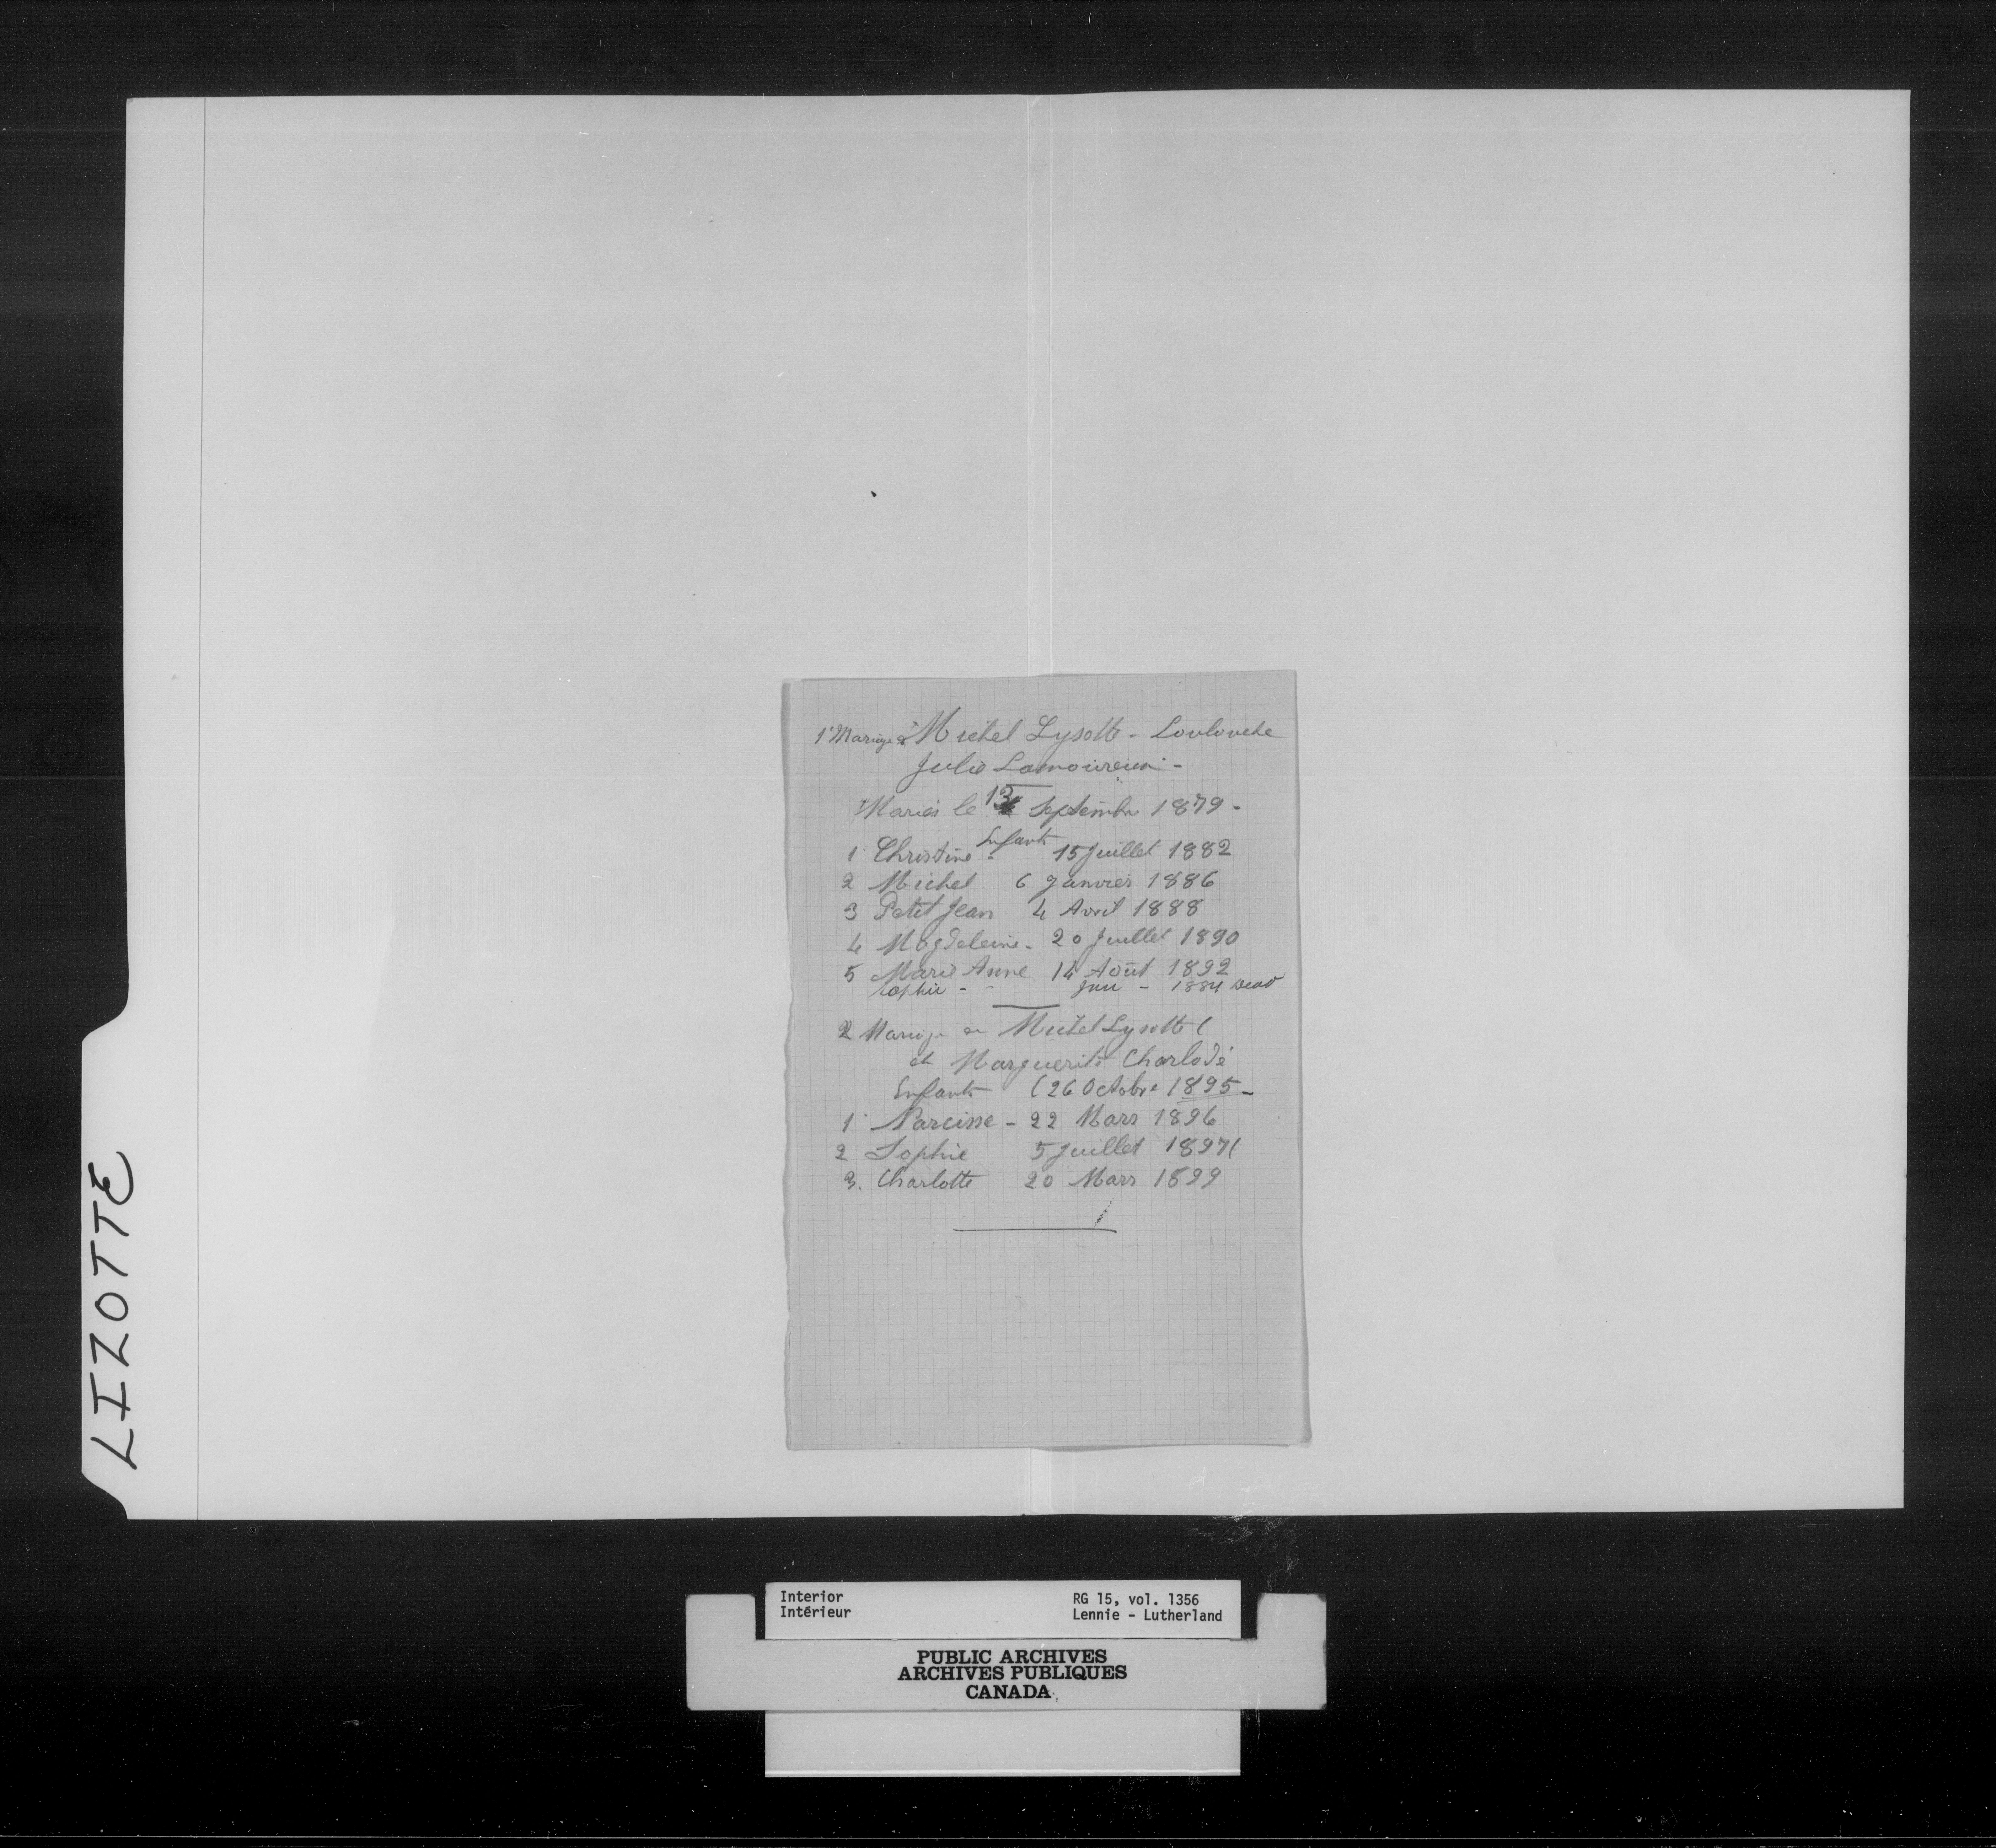 1° Mariage de Michel Lysotte - Louloucke
Julie Lamoureux -
Mariés le 13 Septembre 1879 -
Enfants
1 Christine - 15 Juillet 1882
2 Michel 6 Janvier 1886
3 Petit Jean 4 Avril 1888
4 Magdeleine - 20 Juillet 1890
5 Marie Anne 14 Août 1892
Sophie - 1884 Dead
2 Mariage de Michel Lysotte (
et Marguerite Charlodé
Enfants (26 Octobre 1895 -
1 Narcisse - 22 Mars 1896
2 Sophie 5 Juillet 1897 (
3. Charlotte 20 Mars 1899
LIZOTTE
Interior RG 15, vol. 1356
Intérieur Lennie - Lutherland
PUBLIC ARCHIVES
ARCHIVES PUBLIQUES
CANADA